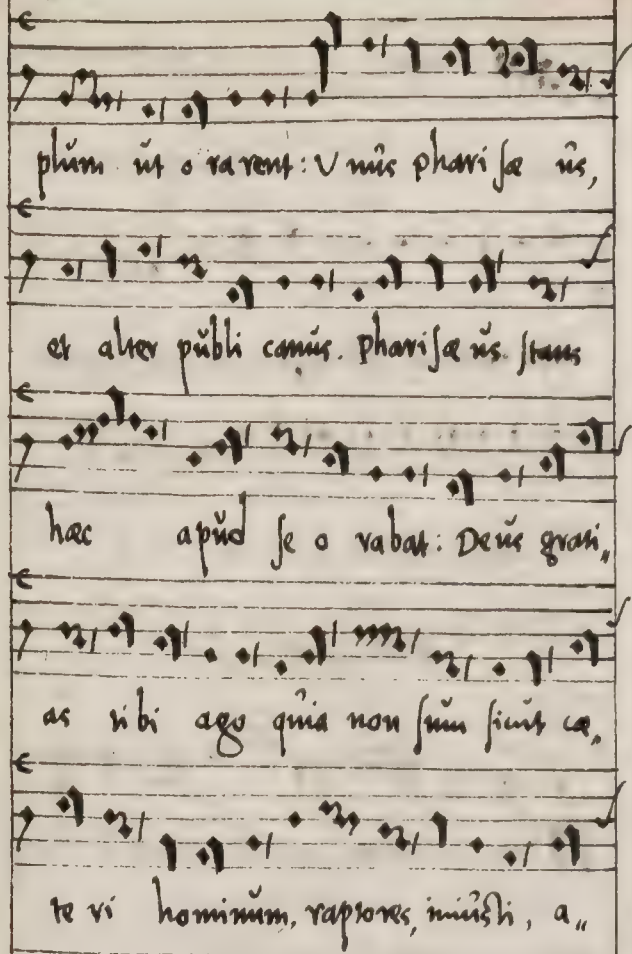 plum ut o rarent: Unus pharisæ us,
et alter publi canus. pharisæ us stans
hæc apud se o rabat: Deus grati„
as tibi ago quia non sum sicut cæ„
te ri hominum, raptores, iniusti, a„